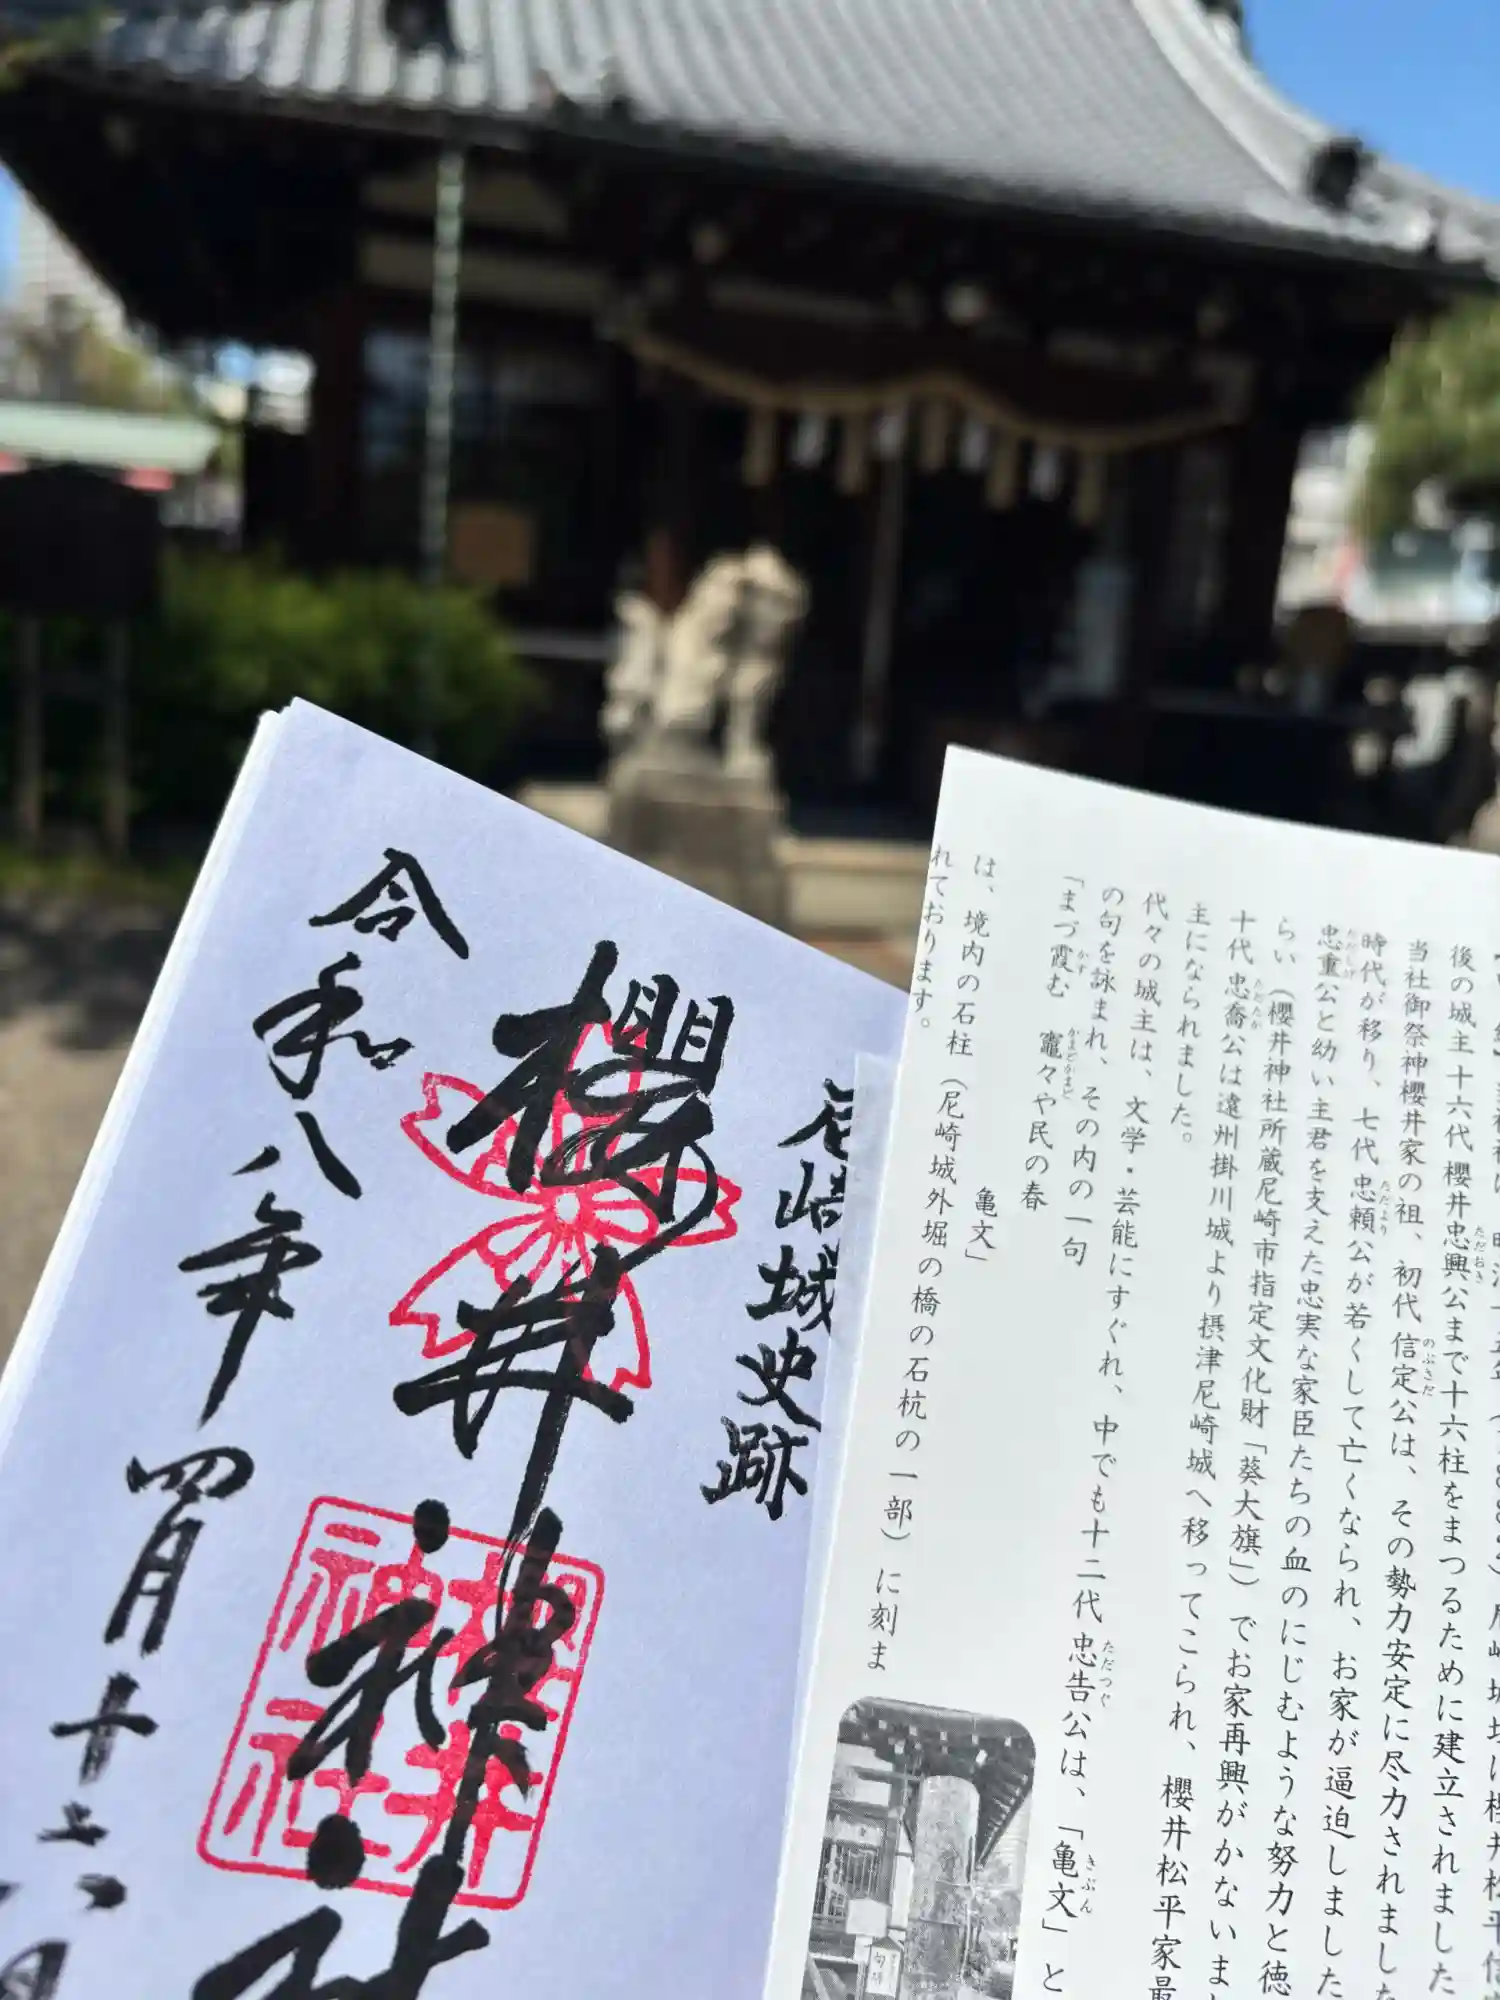 尼崎城史跡
櫻井神社
令和八年四月十六日
櫻井
神社
後の城主十六代櫻井忠興公まで十六柱をまつるために建立されました
当社御祭神櫻井家の祖、初代信定公は、その勢力安定に尽力されました
時代が移り、七代忠頼公が若くして亡くなられ、お家が逼迫しました
忠重公と幼い主君を支えた忠実な家臣たちの血のにじむような努力と徳
らい(櫻井神社所蔵尼崎市指定文化財「葵大旗」)でお家再興がかないま
十代忠喬公は遠州掛川城より摂津尼崎城へ移ってこられ、櫻井松平家最
主になられました。
代々の城主は、文学・芸能にすぐれ、中でも十二代忠告公は、「亀文」と
の句を詠まれ、その内の一句
「まづ霞む 竈々や民の春 亀文」
は、境内の石柱(尼崎城外堀の橋の石杭の一部)に刻ま
れております。